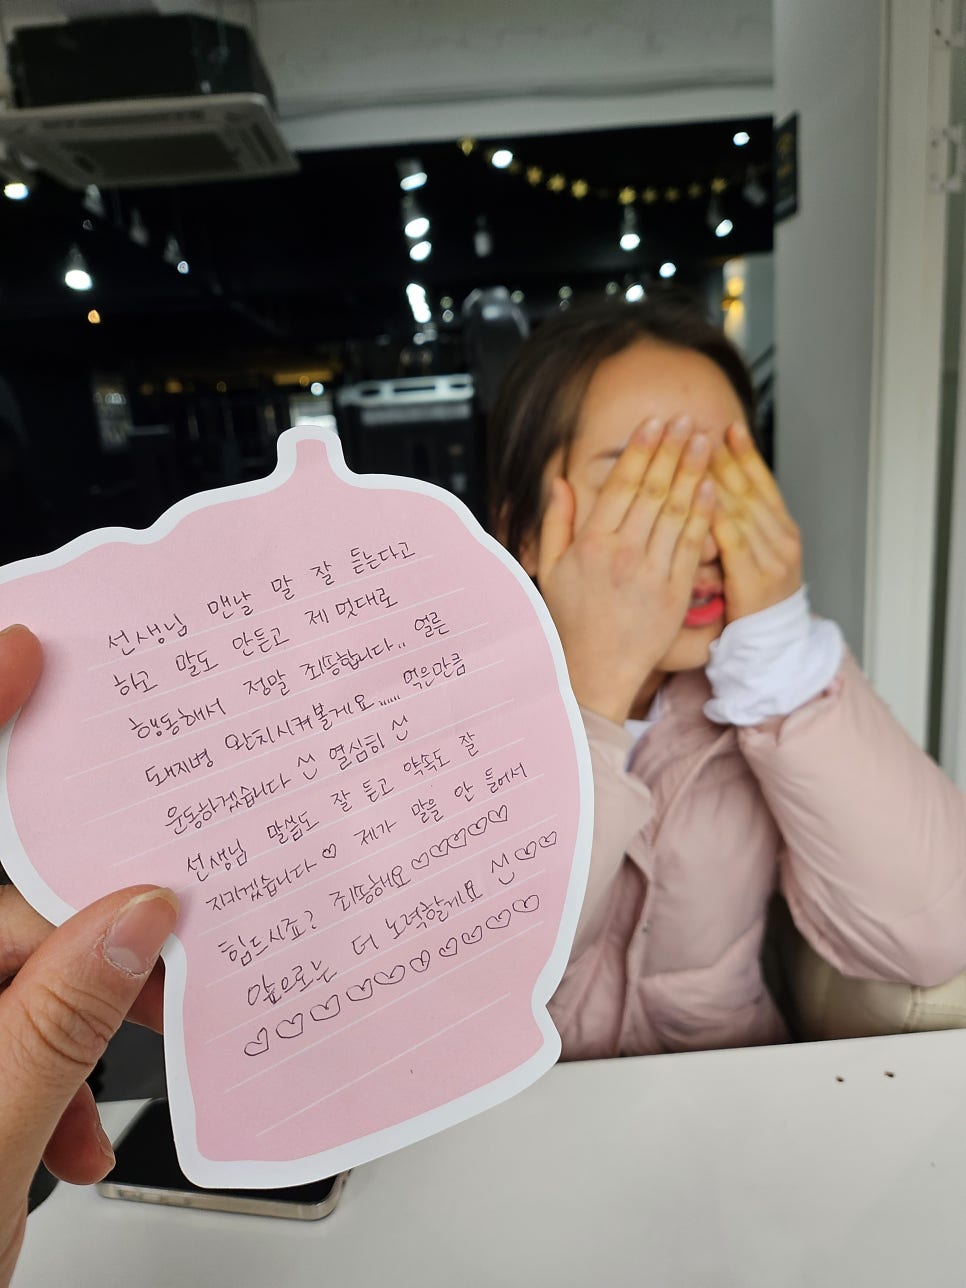 선생님 맨날 말 잘 듣는다고
하고 말도 안듣고 제 멋대로
행동해서 정말 죄송합니다.. 얼른
돼지병 완치시켜볼게요..... 먹은만큼
운동하겠습니다 열심히
선생님 말씀도 잘 듣고 약속도 잘
지키겠습니다♡ 제가 말을 안 들어서
힘드시죠? 죄송해요♡♡♡♡♡♡
앞으로는 더 노력할게요 ♡♡♡
♡♡♡♡♡♡♡♡♡♡